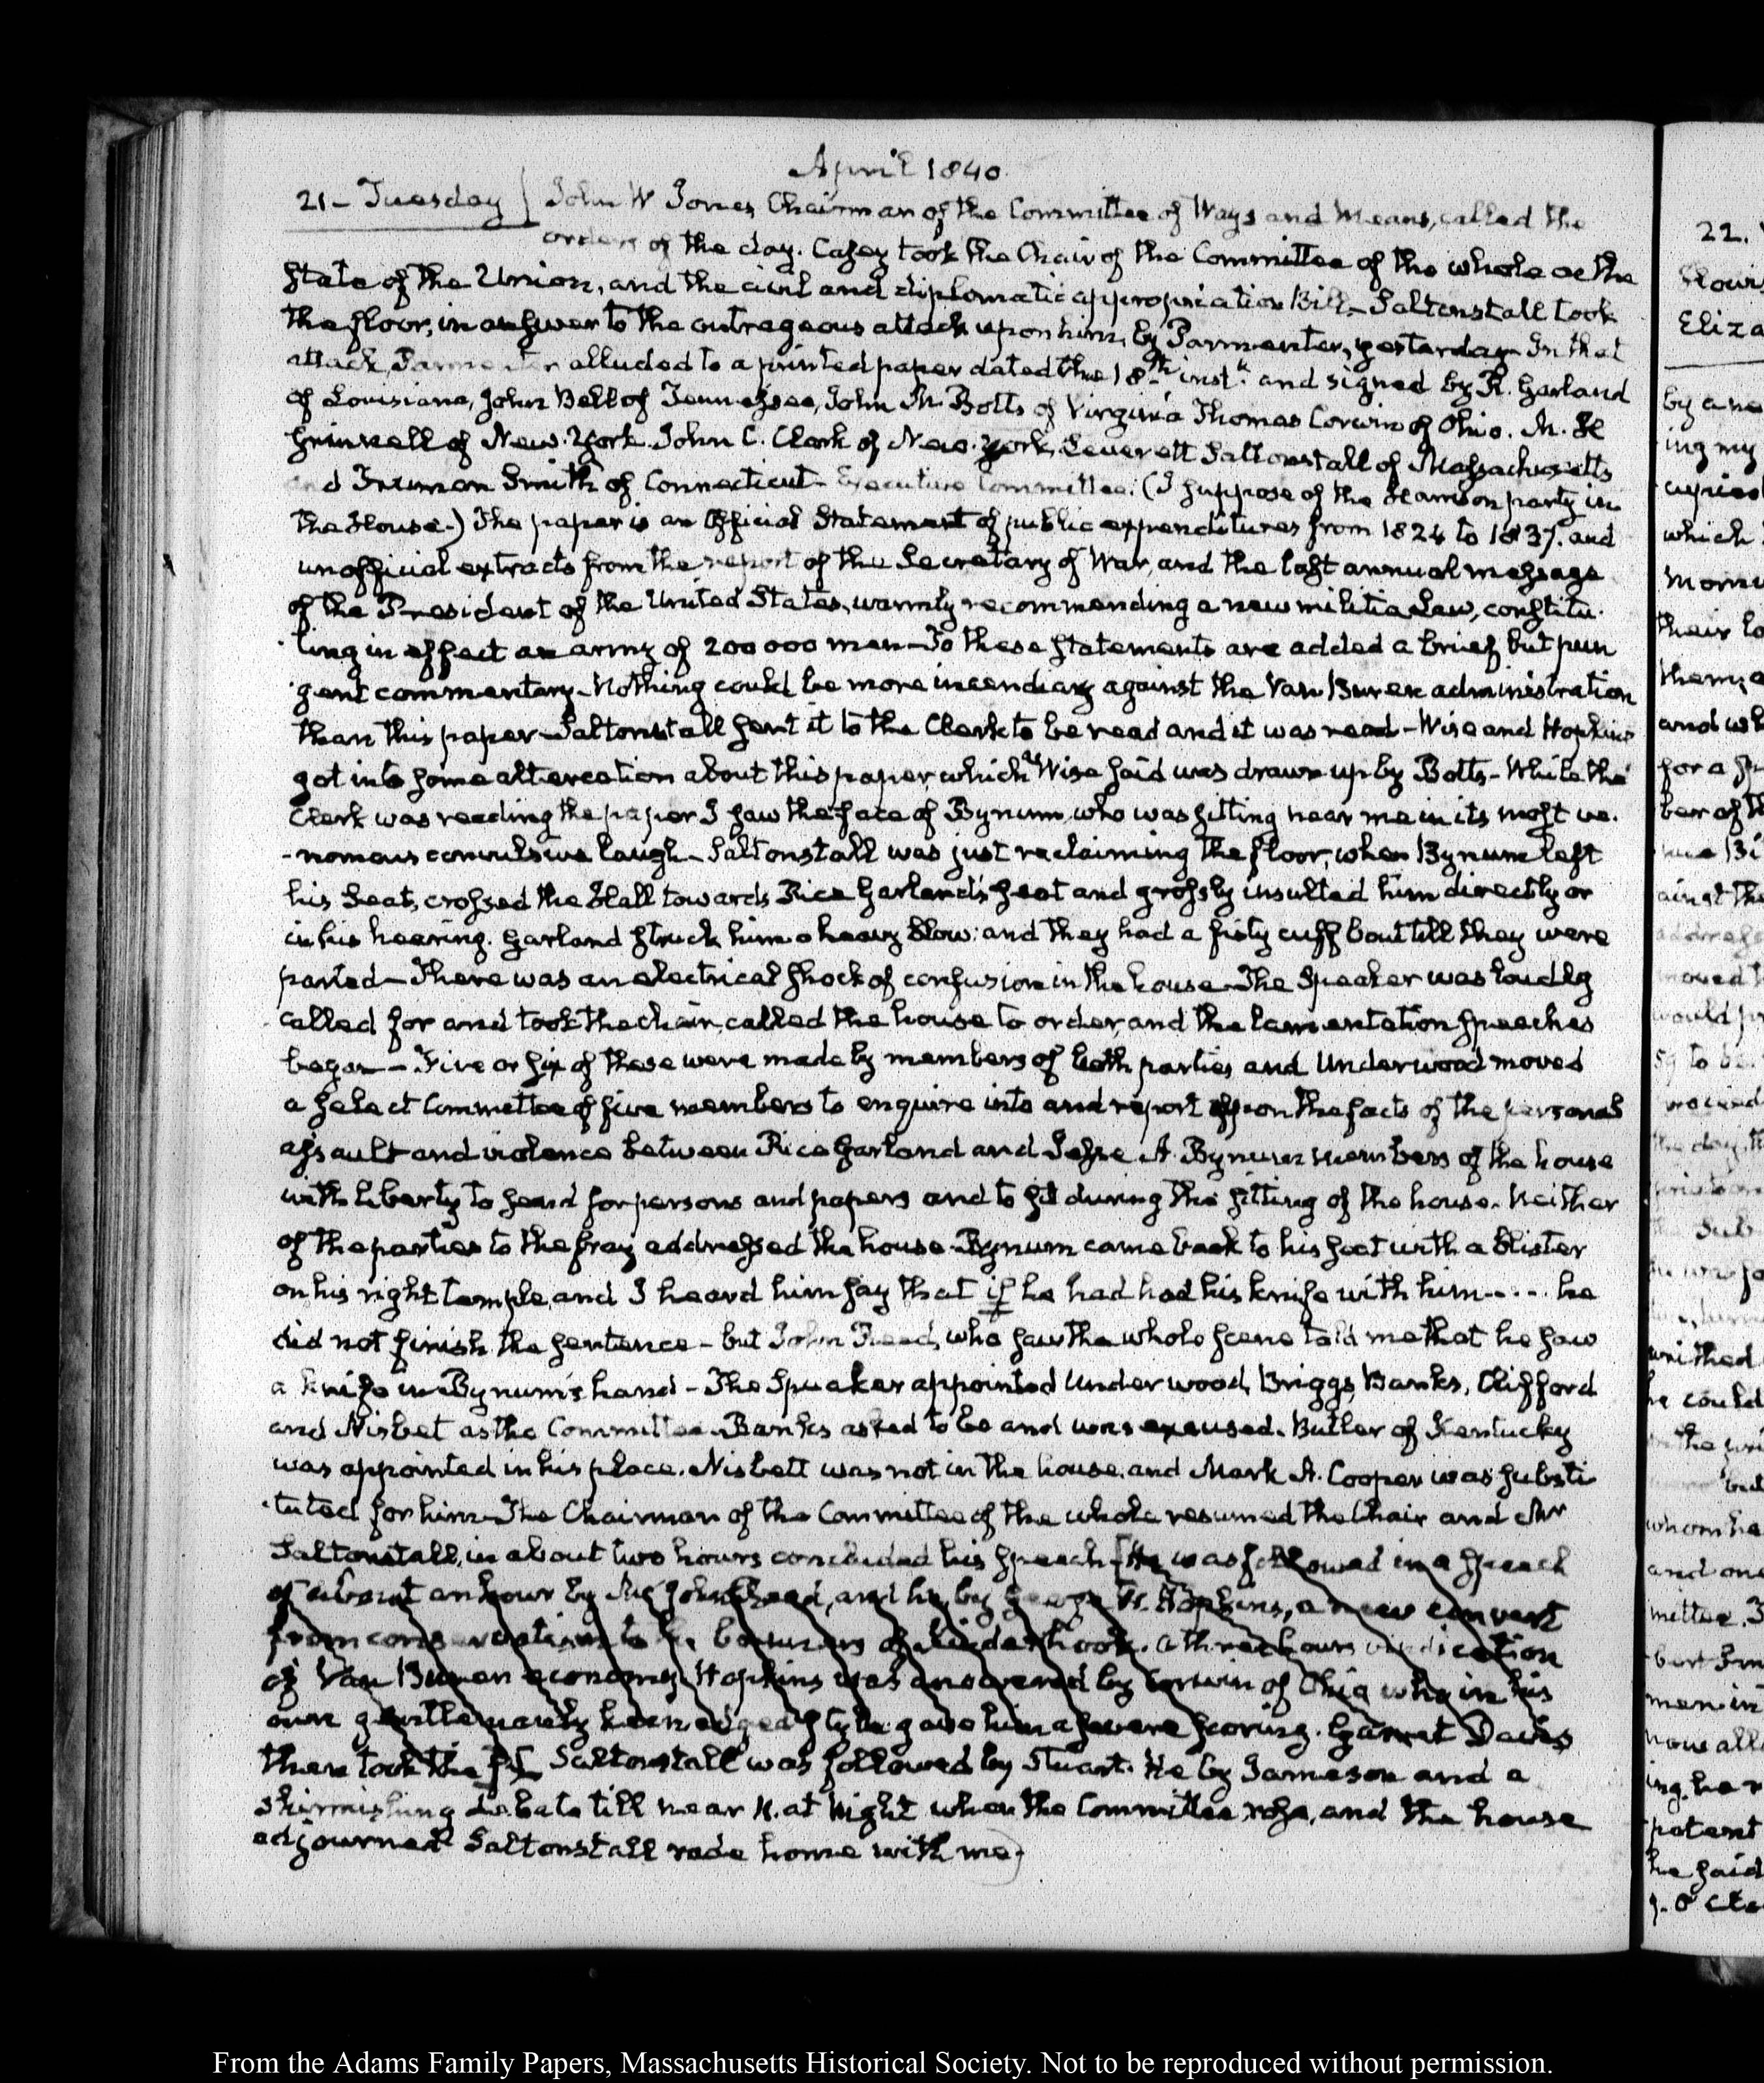 April 1840
21 – Tuesday John W Jones Chairman of the Committee of Ways and Means, called the
orders of the day. Casey took the Chair of the Committee of the whole on the
State of the Union, and the civil and diplomatic appropriation Bill – Saltonstall took
the floor, in answer to the outrageous attack upon him, by Parmenter, yesterday – In that
attack, Parmenter alluded to a printed paper dated the 18th inst. and signed by R. Garland
of Louisiana, John Bell of Tennessee, John M. Botts of Virginia Thomas Corwin of Ohio. M. H
Grinnell of New-York. John C. Clark of New-York, Leverett Saltonstall of Massachusetts
and Truman Smith of Connecticut – Executive Committee. (I suppose of the Harrison party in
the House.) The paper is an official Statement of public expenditures from 1824 to 1837. and
unofficial extracts from the report of the Secretary of War, and the last annual message
of the President of the United States, warmly recommending a new militia law, constitu-
ting in effect an army of 200 000 men – To these statements are added a brief but pun
gent commentary – Nothing could be more incendiary against the Van Buren administration
than this paper – Saltonstall sent it to the Clerk to be read and it was read – Wise and Hopkins
got into some altercation about this paper, which Wise said was drawn up by Botts – While the
Clerk was reading the paper I saw the face of Bynum, who was sitting near me in its most ve-
-nomous convulsive laugh – Saltonstall was just reclaiming the floor, when Bynum left
his Seat, crossed the Hall towards Rice Garland's seat and grossly insulted him directly or
in his hearing. Garland struck him a heavy blow; and they had a fisty cuff bout till they were
parted – There was an electrical shock of confusion in the house – The Speaker was loudly
called for and took the chair, called the house to order, and the lamentation speeches
began – Five or six of these were made by members of both parties and Underwood moved
a select Committee of five members to enquire into and report upon the facts of the personal
assault and violence between Rice Garland and Jesse A. Bynum members of the house
with liberty to send for persons and papers and to sit during the sitting of the house. Neither
of the parties to the fray addressed the house. Bynum came back to his seat with a blister
on his right temple, and I heard him say that if he had had his knife with him – . . . he
did not finish the sentence – but John Reed, who saw the whole scene told me that he saw
a knife in Bynum's hand – The Speaker appointed Underwood, Briggs, Banks, Clifford
and Nisbet as the Committee – Banks asked to be and was excused. Butler of Kentucky
was appointed in his place. Nisbett was not in the house, and Mark A. Cooper was substi
tuted for him – The Chairman of the Committee of the whole resumed the Chair and Mr
Saltonstall, in about two hours concluded his speech [He was followed in a speech
of about an hour by Mr John Reed, and he by George W. Hopkins, a new convert
from conservatism to the of Kinderhook. a three hours vindication
of Van Buren economy. Hopkins was answered by Corwin of Ohio who in his
own gentlemanly keen edged style gave him a severe scoring. Garret Davis
then took the fl] Saltonstall was followed by Stuart. He by Jameson and a
skirmishing debate till near 11. at Night when the Committee rose, and the house
adjourned Saltonstall rode home with me.
22.
Eliza
by a
ing my
which
their
them,
and
for a
would
Sub
writhed
he could
but
whom he
and one
mittee.
men in
now all
ing. he
patent
he said
From the Adams Family Papers, Massachusetts Historical Society. Not to be reproduced without permission.